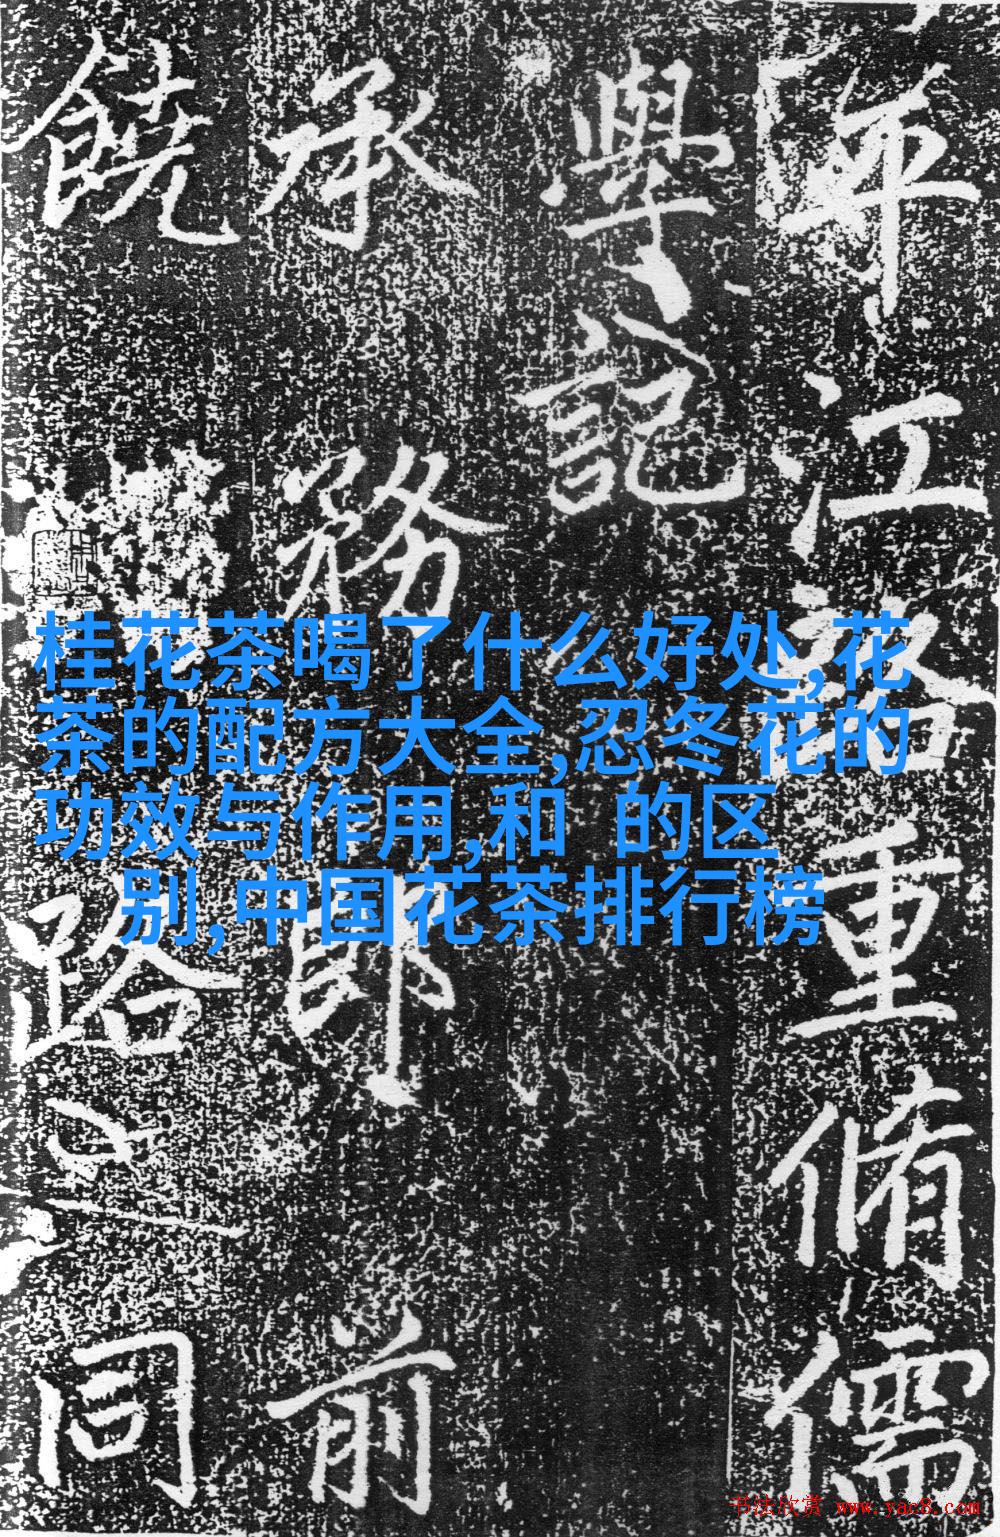 平江路重脩儒
學記
承務郎前
饒路之同
桂花茶喝了什么好处,花
茶的配方大全,忍冬花的
功效与作用,和 的区
别,中国花茶排行榜
书法欣赏 www.yac8.com